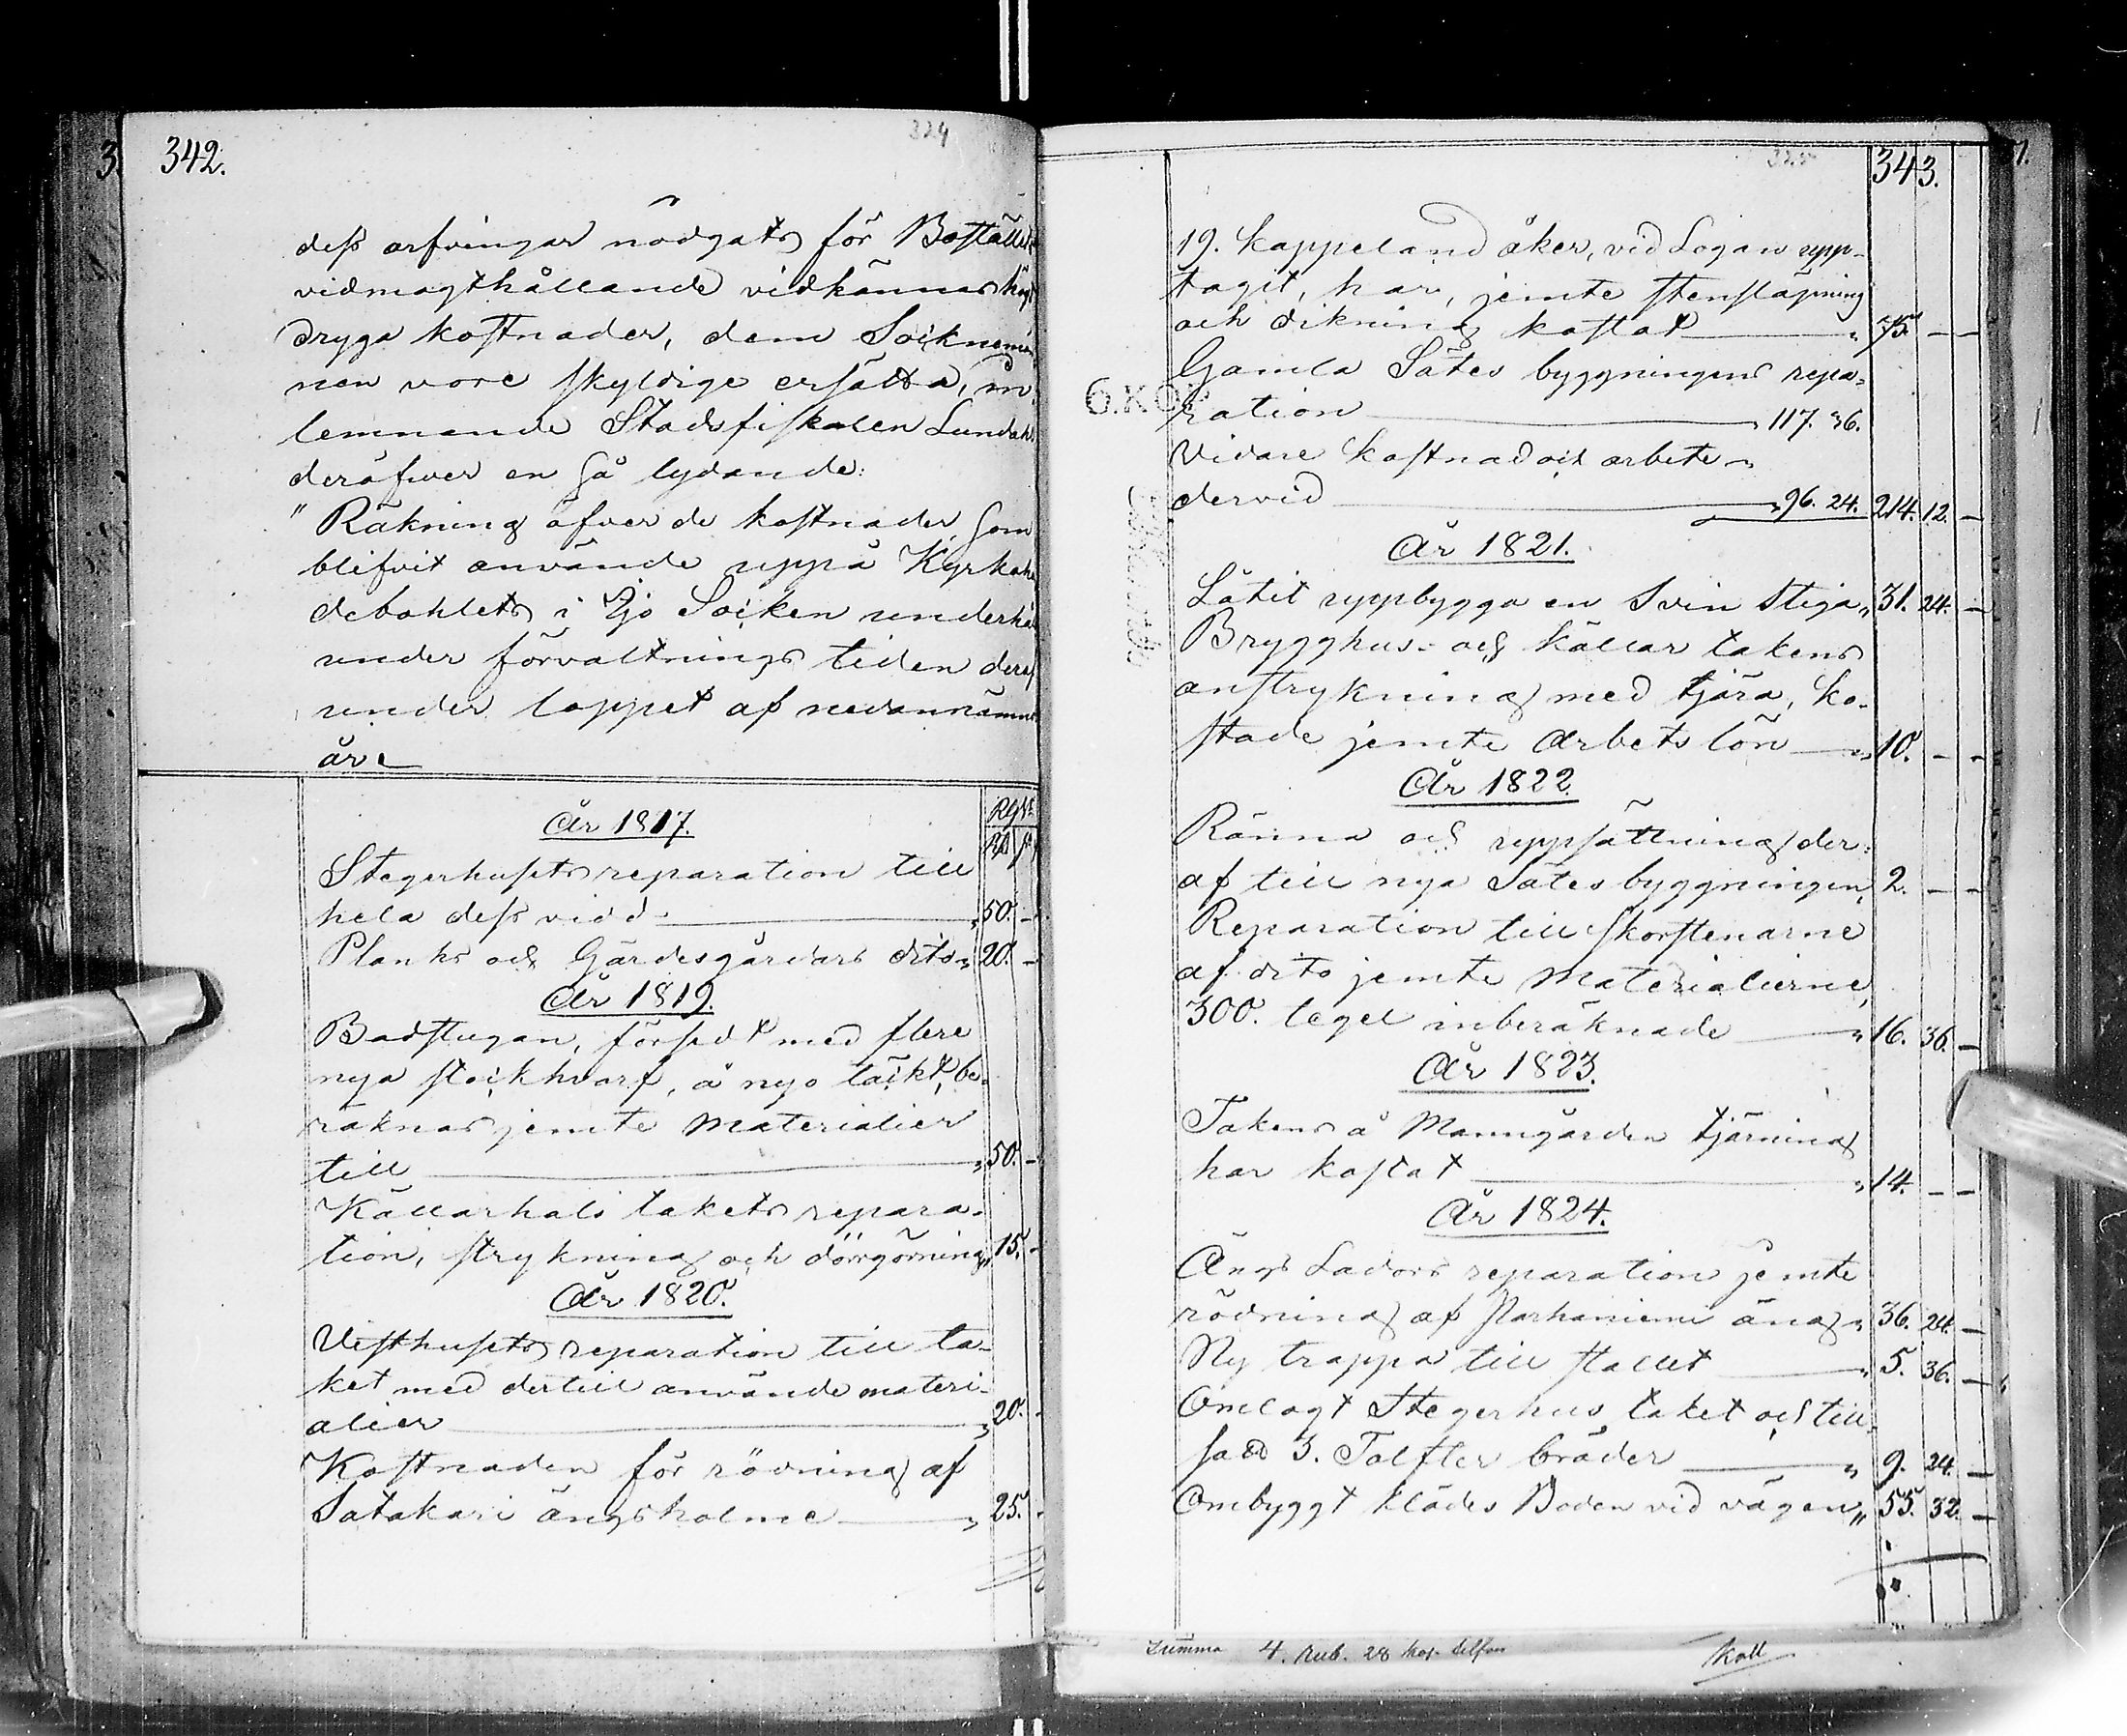 342.
324
dess arfvingar nödgats för Boställets
vidmagthållande vidkännas högst
dryga kostnader, dem Sockneme͞n
nen vore skyldige ersätta, in
lemnande Stadsfiskalen Lundahl
deröfwer en så lydande:
"Räkning öfver de kostnader, som
blifvit använde uppå Kyrkohe
debohlets i Ijo Socken underhåll
under förvaltnings tiden deraf
under loppet af nedannämnde
åre
År 1817.
Rgs
Rb
Stegerhusets reparation till
hela dess vidd " 50. -
Planks och Gärdesgårdars dito " 20. -
År 1819.
Badstugan, försedt med flere
nya stockhvarf, å nyo täckt, be-
räknas jemte Materialier
till " 50. -
Källarhals takets repara-
tion, strykning och dörrgörning " 15. -
År 1820.
Visthusets reparation till ta-
ket med dertill använde materi-
alier " 20. -
Kostnaden för rödning af
Satakari ängsholme " 25. -
325
343.
19. kappeland åker, vid Logan upp-
tagit, har, jemte stensläpning
och dikning kostat " 75. - -
Gamla Sätes byggningens repa-
ration " 117. 36.
Vidare kostnad och arbete
dervid " 96. 24. 214. 12. -
6. KOP
År 1821.
Låtit uppbygga en Svin Stiga " 31. 24. -
Brygghus- och källar takens
anstrykning med tjära, ko-
stade jemte Arbets lön " 10. - -
År 1822.
Ränna och uppsättning der-
af till nya Sätes byggningen " 2. - -
Reparation till skorstenarne
af dito jemte Materialierne,
300. tegel inberäknade " 16. 36. -
År 1823.
Takens å Manngården tjärning
har kostat " 14. - -
År 1824.
Ängs Ladors reparation jemte
rödning af Karhaniemi äng " 36. 24. -
Ny trappa till stallet " 5. 36. -
Omlagt Stegerhus taket och till-
satt 3. Tolfter bräder " 9. 24. -
Ombyggt klädes Boden vid vägen " 55. 32. -
Summa 4. Rub. 28 kop. silfver